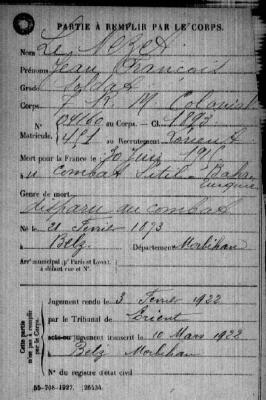 PARTIE À REMPLIR PAR LE CORPS.
Nom Le
Prénoms Jean François
Grade Soldat
Corps 7 R. M Colonial
N° 04160 au Corps. — Cl. 1893
Matricule. au Recrutement Lorient
Mort pour la France le 30 191
à combat
Genre de mort
disparu au combat
Né le 21 Février 1873
à Belz Département Morbihan
Arr^t municipal (p^r Paris et Lyon),
à défaut rue et N°.
Cette partie
n'est pas à remplir
par le Corps.
Jugement rendu le 3 Fevrier 1922
par le Tribunal de Lorient
acte ou jugement transcrit le 10 Mars 1922
à Belz Morbihan
N° du registre d'état civil
55-708-1927. [26434.]